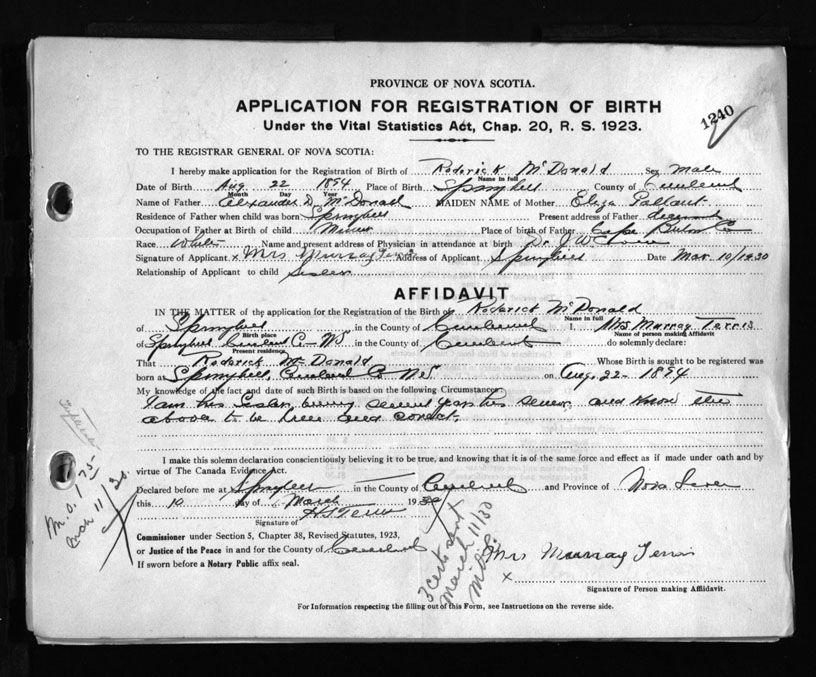 PROVINCE OF NOVA SCOTIA.
APPLICATION FOR REGISTRATION OF BIRTH
1240
Under the Vital Statistics Act, Chap. 20, R. S. 1923.
TO THE REGISTRAR GENERAL OF NOVA SCOTIA:
I hereby make application for the Registration of Birth of Roderick McDonald Sex Male
Name in full
Date of Birth Aug. 22 1894 Place of Birth Springhill County of Cumberland
Month Day Year
Name of Father Alexander D. McDonald MAIDEN NAME of Mother Eliza
Residence of Father when child was born Springhill Present address of Father deceased
Occupation of Father at Birth of child Miner Place of birth of Father Cape Breton Co
Race White Name and present address of Physician in attendance at birth Dr. J. W.
Signature of Applicant x Mrs Murray Terris Address of Applicant Springhill Date Mar. 10/1930
Relationship of Applicant to child Sister
AFFIDAVIT
IN THE MATTER of the application for the Registration of the Birth of Roderick McDonald
Name in full
of Springhill in the County of Cumberland I, Mrs Murray Terris
Birth place Name of person making Affidavit
of Springhill Cumberland Co. N.S. in the County of Cumberland do solemnly declare:
Present residence
That Roderick McDonald Whose Birth is sought to be registered was
born at Springhill, Cumberland Co N.S. on Aug. 22 - 1894
My knowledge of the fact and date of such Birth is based on the following Circumstances:
I am his Sister, being several years his senior, and know the
above to be true and correct.
I make this solemn declaration conscientiously believing it to be true, and knowing that it is of the same force and effect as if made under oath and by
virtue of The Canada Evidence Act.
Declared before me at Springhill in the County of Cumberland and Province of Nova Scotia
this 10 day of March 1930
Signature of
Commissioner under Section 5, Chapter 38, Revised Statutes, 1923,
or Justice of the Peace in and for the County of Cumberland
If sworn before a Notary Public affix seal.
x Mrs Murray Terris
Signature of Person making Affidavit.
For Information respecting the filling out of this Form, see Instructions on the reverse side.
M.O. 1.75
March 11/30.
3 certs sent
March 11/30